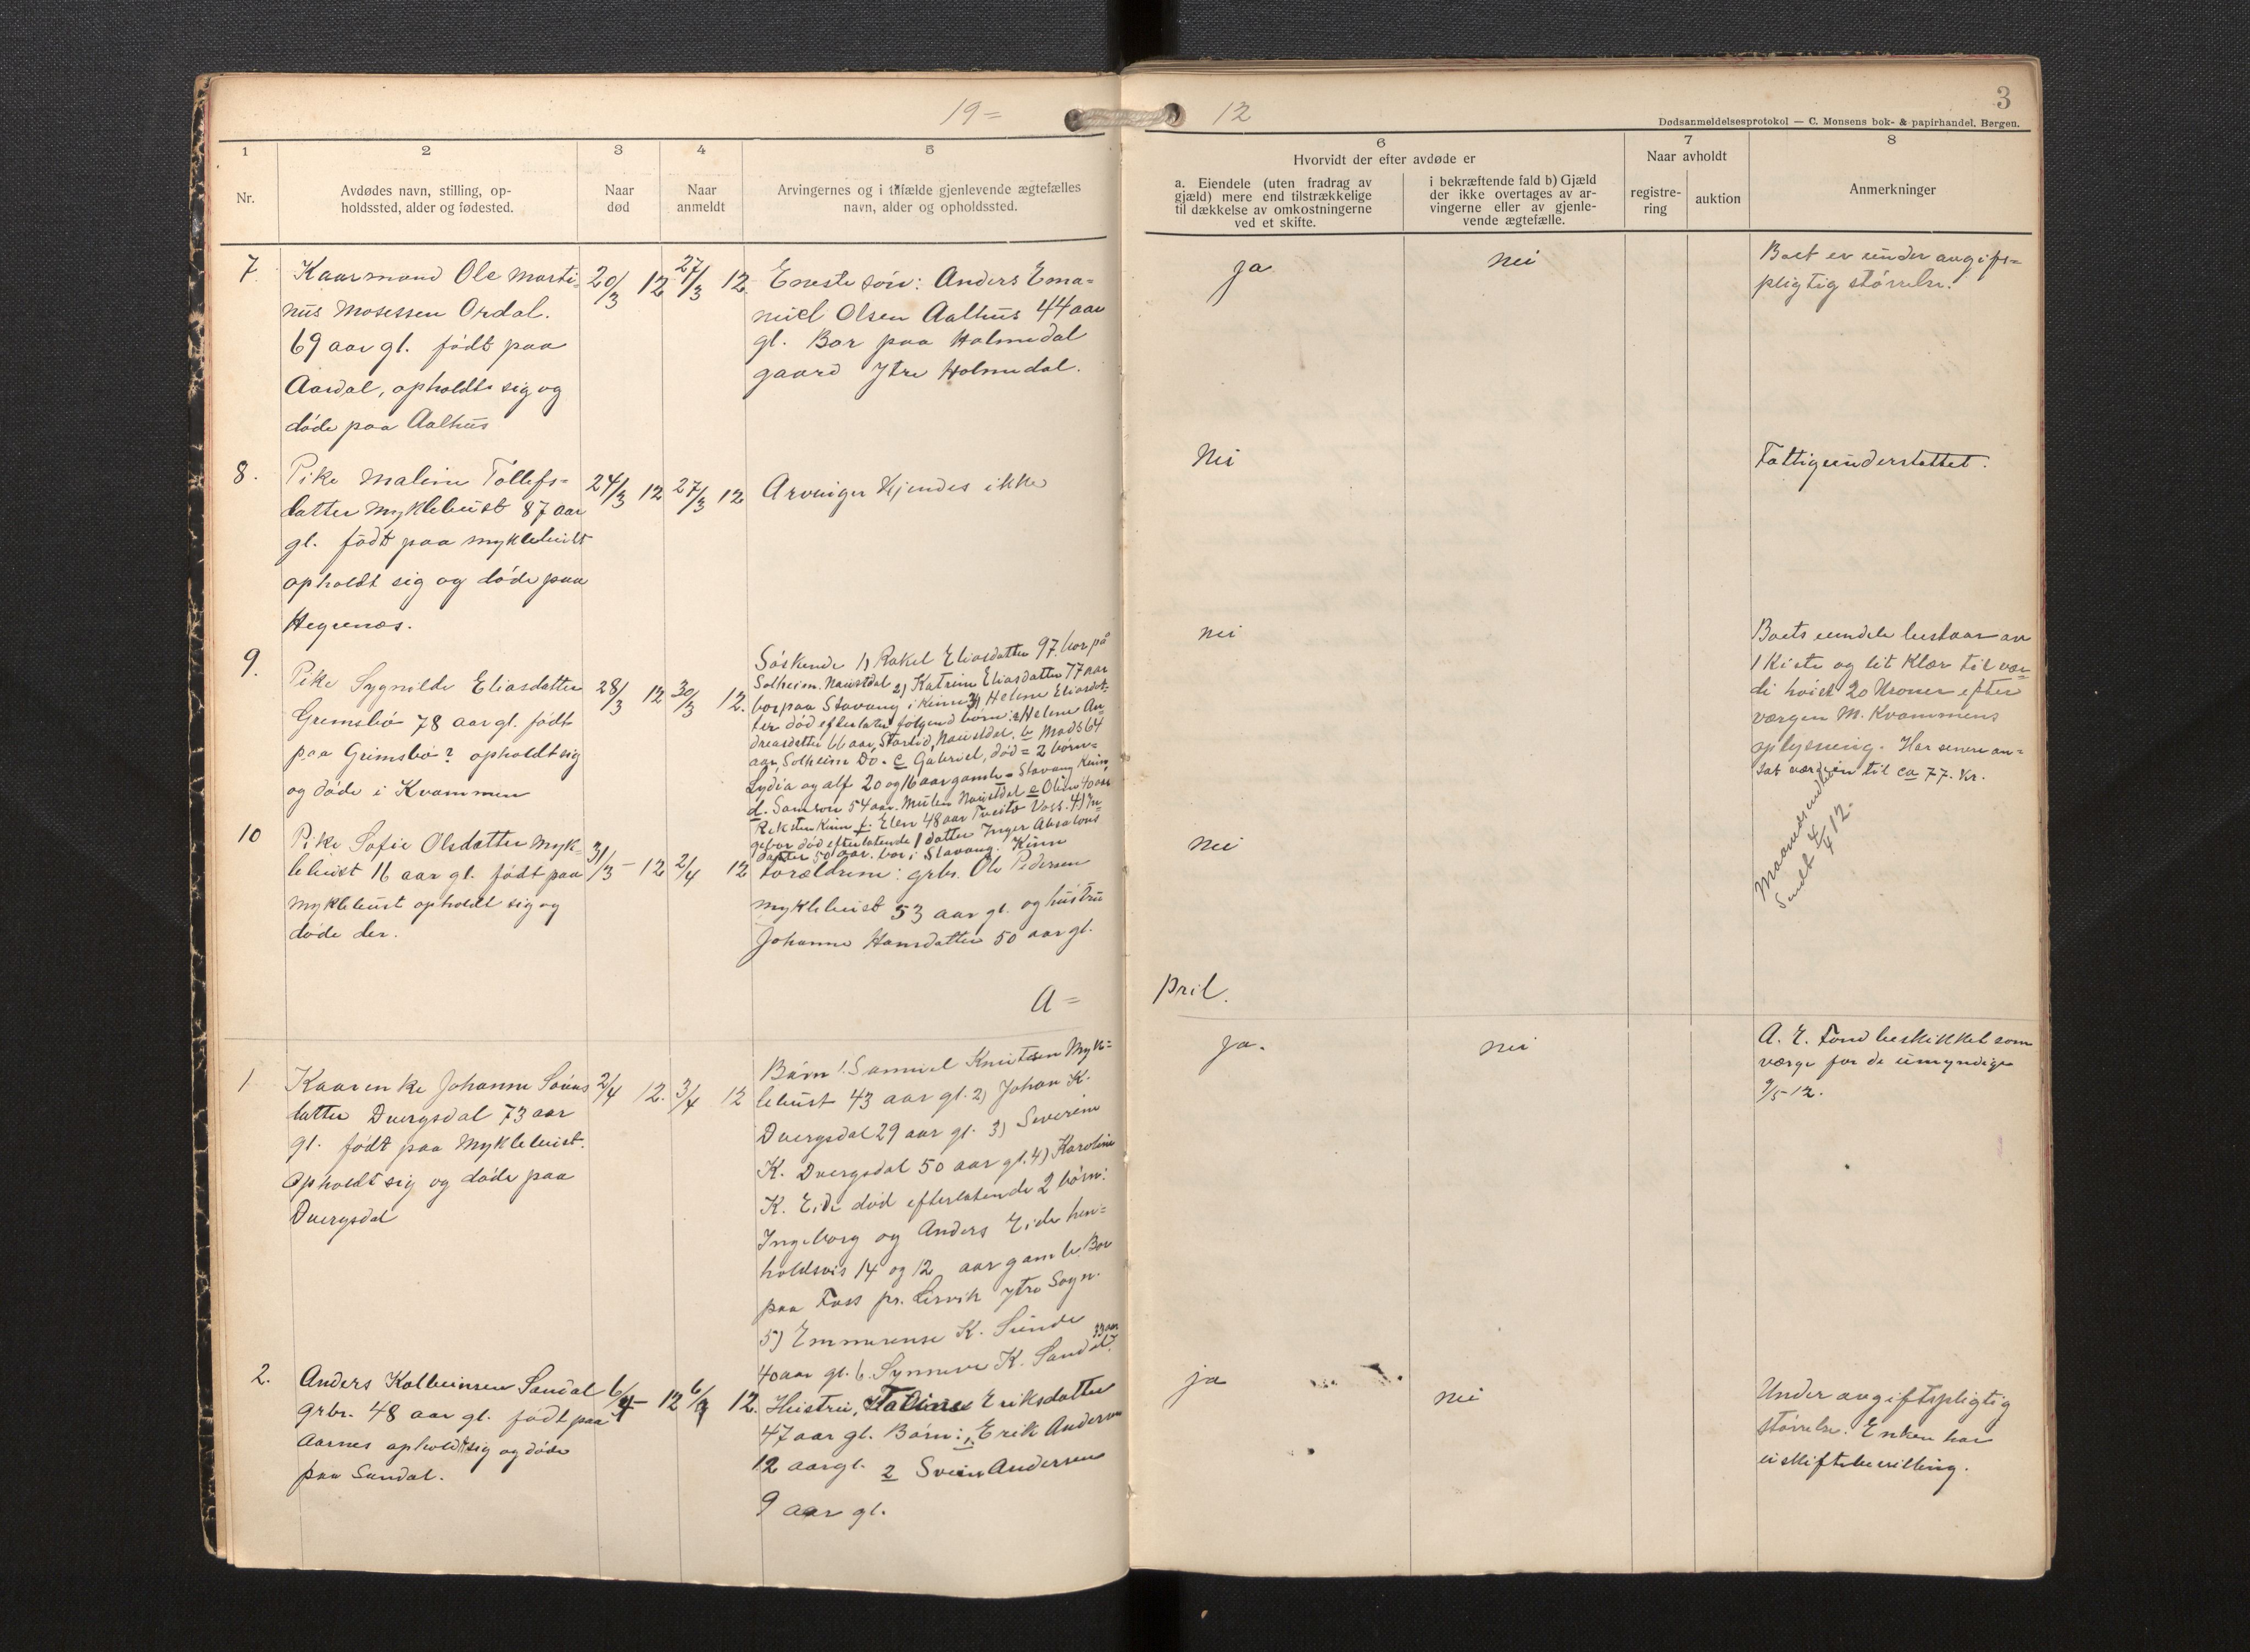 19=
12
3
Dødsanmeldelsesprotokol — C. Monsens bok- & papirhandel, Bergen.
1
2
3
4
5
6
7
8
Nr.
Avdødes navn, stilling, op-
holdssted, alder og fødested.
Naar
død
Naar
anmeldt
Arvingernes og i tilfælde gjenlevende ægtefælles
navn, alder og opholdssted.
Hvorvidt der efter avdøde er
a. Eiendele (uten fradrag av
gjæld) mere end tilstrækkelige
til dækkelse av omkostningerne
ved et skifte.
i bekræftende fald b) Gjæld
der ikke overtages av ar-
vingerne eller av gjenle-
vende ægtefælle.
Naar avholdt
registre-
ring
auktion
Anmerkninger
7
Kaarmand Ole Marti-
nus Mosessen Ordal.
69 aar gl. født paa
Aardal, opholdte sig og
døde paa Aalhus
20/3 12
27/3 12.
Eneste søn: Anders Ema-
nuel Olsen Aalhus 44 aar
gl. Bor paa Holmedal
gaard Ytre Holmedal.
ja
nei
Boet er under avgifs=
pligtig størrelse.
8.
Pike Maline Tollefs-
datter Myklebust 87 aar
gl. født paa Myklebust
opholdt sig og døde paa
Hegrenæs.
24/3 12
27/3 12
Arvinger kjendes ikke
Nei
Fattigunderstøttet.
9.
Pike Sygnilde Eliasdatter
Grimsbø 78 aar gl. født
paa Grimsbø? opholdt sig
og døde i Kvammen
28/3 12
30/3 12.
Søskende 1) Rakel Eliasdatter 97. bor på
Solheim. Naustdal 2) Katrine Eliasdatter 77 aar
bor paa Stavang i Kinn 3) Helene Eliasdat-
ter død efterlater følgend børn: a Helene An-
dreasdatter 66 aar, Naustdal. b Mads 64
aar, Solheim Do. c Gabriel, død = 2 børn=
Lydia og Alf 20 og 16 aar gamle - Stavang Kinn,
d. Samson 54 aar. Naustdal e Oline 40 aar
Kinn f. Elen 48 aar Voss. 4) In-
gebor død efterlatende 1 datter Inger Absalons
datter 50 aar. bor i Stavang. Kinn
nei
Boets eiendele bestaar av
1 Kiste og lit Klær til vær-
di høist 20 Kroner efter
værgen M. Kvammens
oplysning. Har senere an-
sat værdien til ca 77. Kr.
10
Pike Sofie Olsdatter Myk-
lebust 16 aar gl. født paa
Myklebust opholdt sig og
døde der.
31/3 - 12
2/4 12
Forældrene: grbr. Ole Pedersen
Myklebust 53 aar gl. og hustru
Johanne Hansdatter 50 aar gl.
nei
Sendt 4/4 12.
A=
pril.
1
Kaarenke Johanne
datter Dvergsdal 73 aar
gl. født paa Myklebust.
Opholdt sig og døde paa
Dvergsdal
2/4 12.
3/4 12
Børn 1. Samuel Knutsen Myk=
lebust 43 aar gl. 2) Johan K.
Dvergsdal 29 aar gl. 3) Severine
K. Dvergsdal 50 aar gl. 4) Karoline
K. Eide død efterlatende 2 børn:
Ingeborg og Anders Eide hen=
holdsvis 14 og 12 aar gamle. Bor
paa Foss pr. Lervik Ytre Sogn.
5) Emmerense K. Sunde
40 aar gl. 6. Synneve K. Sandal. 33 aar
ja.
nei
A. E. Fond beskikket som
værge for de umyndige
9/5-12.
2.
Anders Kolbeinsen Sandal
grbr. 48 aar gl. født paa
Aarnes opholdt sig og døde
paa Sandal.
6/4 - 12
6/4 12.
Hustru, Eriksdatter
47 aar gl. Børn: 1. Erik Andersen
12 aar gl. 2 Svein Andersen
9 aar gl.
ja
nei
Under avgiftspligtig
størrelse. Enken har
uskiftebevilling.